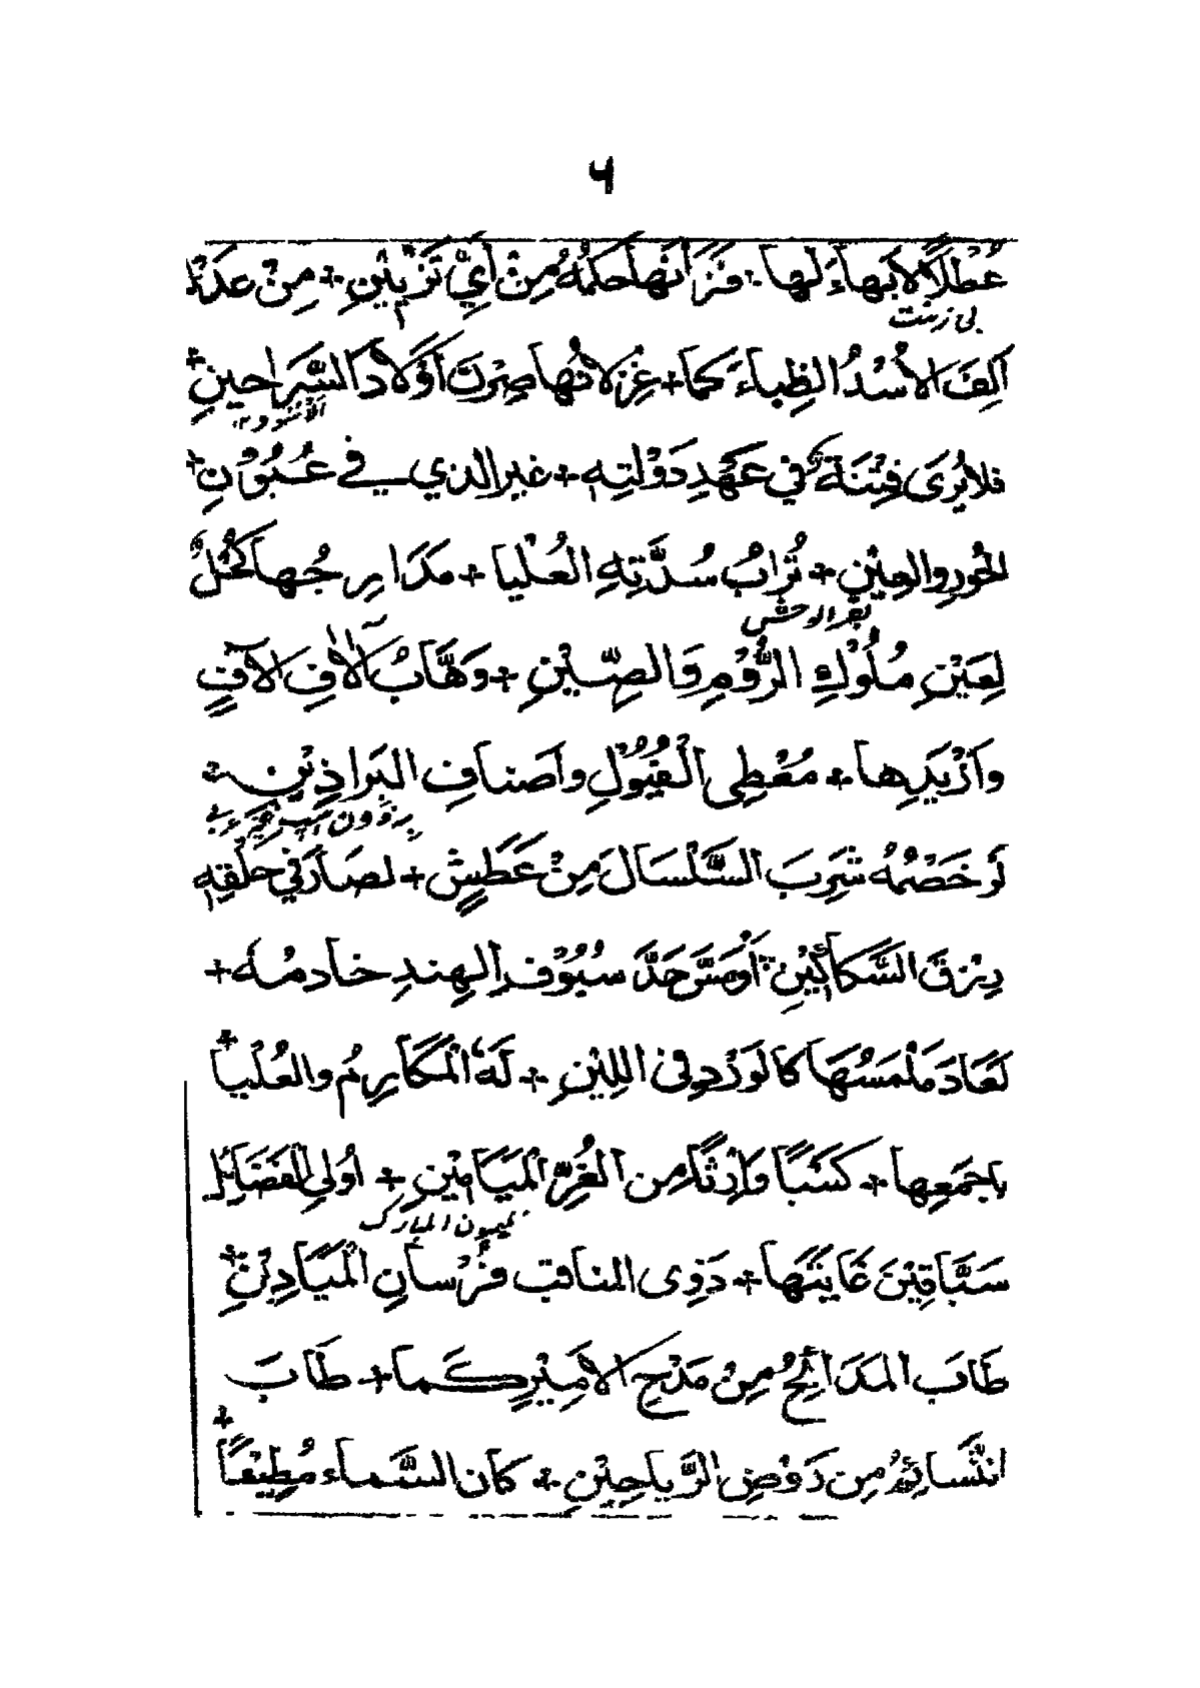 ٦
عُطْلًا لا بَهاءَ لها + فَزَانَهَا حُكْمُهُ مِنْ أَيِّ تَزْيِيْنِ + مِنْ عَدْلِهٖ
بی زینت
اَلِفَ الاُسْدُ الظِباءَ كما + غِزْلانُها صِرْنَ اَوْلادَ السَّرَاحِينِ +
فلا يُرَى فِتْنَةٌ في عَهْدِ دَوْلَتِهٖ + غير الذي في عُيُوْنِ +
الحُورِ والعِيْنِ + تُرابُ سُدَّتِهِ العُلْيا + مَدَارِجُها كُحْلٌ
بقر الوحشي
لِعَيْنِ مُلُوْكِ الرُّوْمِ وَالصِّيْنِ + وَهَّابُ آلافِ الآفٍ
وَاَزْيَدِها + مُعْطِى الْفُيُوْلِ واَصنافِ البَراذِيْنِ +
لَوْ خَصْمُهُ شَرِبَ السَّلْسَالَ مِنْ عَطَشٍ + لصَارَ في حَلْقِهٖ
زُرْقَ السَّكاكِيْنِ + اَوْ مَسَّ حَدَّ سُيُوْفِ الهِندِ خادمُهٗ +
لَعَادَ مَلْمَسُهَا كالوَرْدِ فى اللِيْنِ + لَهُ الْمَكَارِمُ والعُلْيا +
باجمَعِها + كَسْبًا وَاِرْثًا مِن الغُرِّ الْمَيَامِيْنِ + اُولِى الفَضَائِلِ
میمون المبارک
سَبَّاقِيْنَ غَايَتَهَا + ذَوِى المناقب فُرْسانِ الْمَيَادِيْنِ +
طَابَ المَدَائِحُ مِنْ مَدْحِ الاَمِيْرِ كَما + طَابَ
النَّسائِمُ مِن رَوْضِ الرَّياحِيْنِ + كان السَّماء مُطِيْعًا +